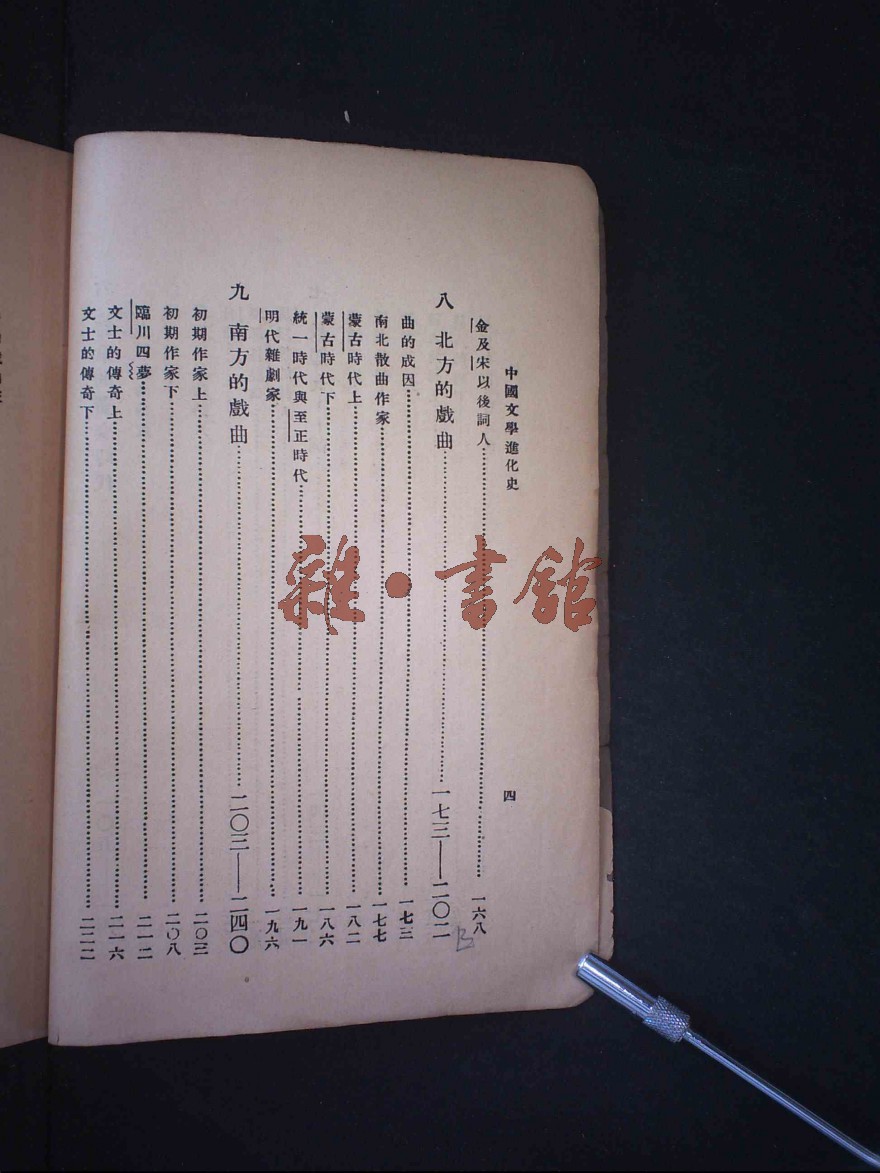 中國文學進化史
四
金及宋以後詞人……一六八
八 北方的戲曲……一七三——二〇二
曲的成因……一七三
南北散曲作家……一七七
蒙古時代上……一八二
蒙古時代下……一八六
統一時代與至正時代……一九一
明代雜劇家……一九六
九 南方的戲曲……二〇三——二四〇
初期作家上……二〇三
初期作家下……二〇八
臨川四夢……二一二
文士的傳奇上……二一六
文士的傳奇下……二二二
雜·書館